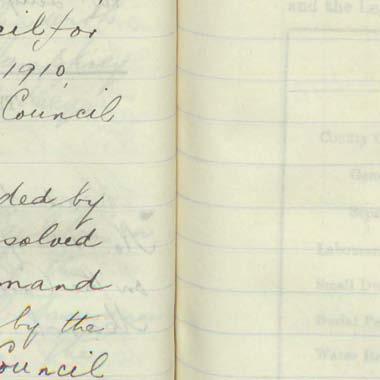 cil for
1910,
Council
ded by
solved
mand
by the
Council
and the Le
County
Gen
Labourer
Small D
Burial
Water